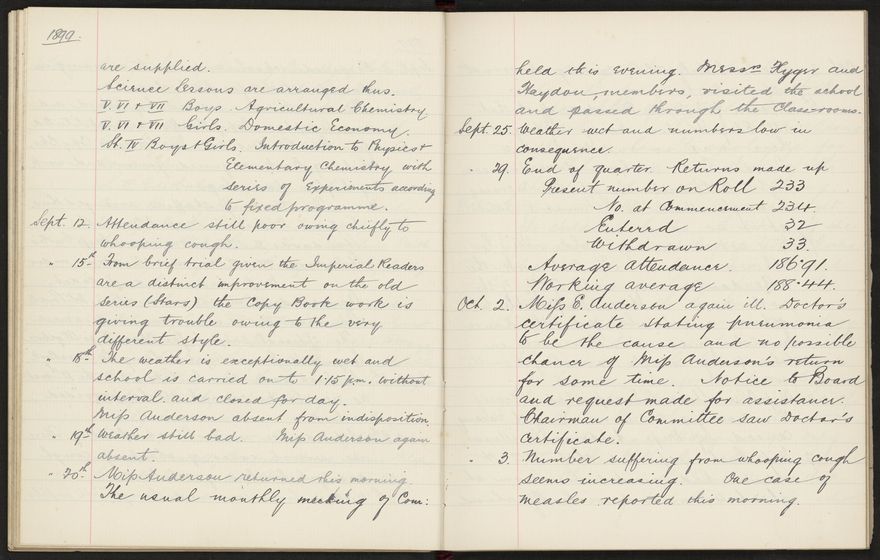 1899.
are supplied.
Science Lessons are arranged thus.
V. VI & VII Boys. Agricultural Chemistry
V. VI & VII Girls. Domestic Economy.
St. IV Boys & Girls. Introduction to Physics &
Elementary Chemistry with
series of Experiments according
to fixed programme.
Sept. 12. Attendance still poor owing chiefly to
whooping cough.
" 15th From brief trial given the Imperial Readers
are a distinct improvement on the old
series (Stars) the Copy Book work is
giving trouble owing to the very
different style.
" 18th The weather is exceptionally wet and
school is carried on to 1.15 p.m. without
interval and closed for day.
Miss Anderson absent from indisposition.
" 19th Weather still bad. Miss Anderson again
absent.
" 20th Miss Anderson returned this morning.
The usual monthly meeting of Com:
held this evening. Messrs Hyger and
Haydon, members, visited the school
and passed through the Classrooms.
Sept. 25. Weather wet and numbers low in
consequence.
" 29. End of quarter. Returns made up
Present number on Roll 233
No. at Commencement 234.
Entered 32
Withdrawn 33.
Average attendance. 186.91.
Working average 188.44.
Oct. 2. Miss E. Anderson again ill. Doctor's
certificate stating pneumonia
to be the cause and no possible
chance of Miss Anderson's return
for some time. Notice to Board
and request made for assistance.
Chairman of Committee saw Doctor's
Certificate.
" 3. Number suffering from whooping cough
seems increasing. One case of
measles reported this morning.